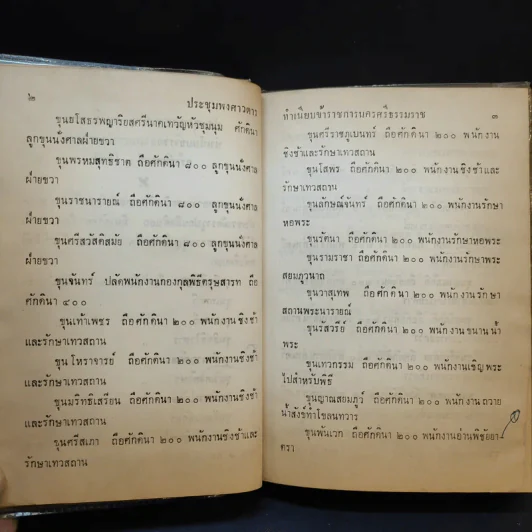 ๒
ประชุมพงศาวดาร
ขุนยโสธรพญาริยสศรีนาคเทวัญหัวชุมนุม ศักดินา
ลูกขุนนั่งศาลฝ่ายขวา
ขุนพรหมสุทธิชาต ถือศักดินา ๘๐๐ ลูกขุนนั่งศาล
ฝ่ายขวา
ขุนราชนารายณ์ ถือศักดินา ๘๐๐ ลูกขุนนั่งศาล
ฝ่ายขวา
ขุนศรีสวัสดิสมัย ถือศักดินา ๘๐๐ ลูกขุนนั่งศาล
ฝ่ายขวา
ขุนจันทร์ ปลัดพนักงานกองกุลพิธีตรุษสารท ถือ
ศักดินา ๔๐๐
ขุนเท้าเพชร ถือศักดินา ๒๐๐ พนักงานชิงช้า
และรักษาเทวสถาน
ขุนโหราจารย์ ถือศักดินา ๒๐๐ พนักงานชิงช้า
และรักษาเทวสถาน
ขุนมริทธิเสรียน ถือศักดินา ๒๐๐ พนักงานชิงช้า
และรักษาเทวสถาน
ขุนศรีสเภา ถือศักดินา ๒๐๐ พนักงานชิงช้าและ
รักษาเทวสถาน
ทำเนียบข้าราชการนครศรีธรรมราช
๓
ขุนศรีราชภูเบนทร์ ถือศักดินา ๒๐๐ พนักงาน
ชิงช้าและรักษาเทวสถาน
ขุนไสพร ถือศักดินา ๒๐๐ พนักงานชิงช้าและ
รักษาเทวสถาน
ขุนลักษณ์จันทร์ ถือศักดินา ๒๐๐ พนักงานรักษา
หอพระ
ขุนรัตนา ถือศักดินา ๒๐๐ พนักงานรักษาหอพระ
ขุนรามราชา ถือศักดินา ๒๐๐ พนักงานรักษาพระ
สยมภูวนาถ
ขุนวาสุเทพ ถือศักดินา ๒๐๐ พนักงานรักษา
สถานพระนารายณ์
ขุนรัสวรีย์ ถือศักดินา ๒๐๐ พนักงานขนานน้ำ
พระ
ขุนเทวกรรม ถือศักดินา ๒๐๐ พนักงานเชิญพระ
ไปสำหรับพิธี
ขุนญาณสยมภูว์ ถือศักดินา ๒๐๐ พนักงานถวาย
น้ำสังข์ทำไขลนทวาร
ขุนพันเวก ถือศักดินา ๒๐๐ พนักงานอ่านพิชัยยา-
ตรา